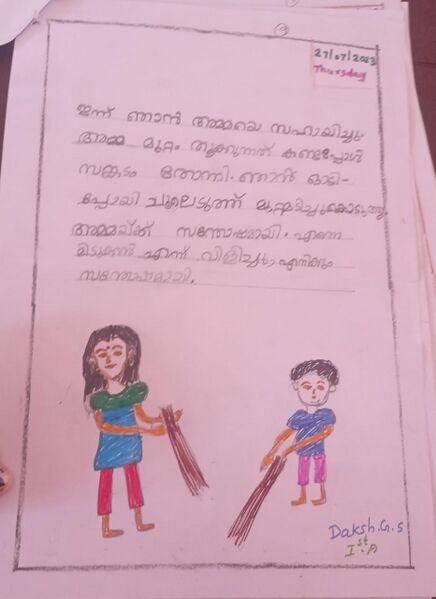 9
27/07/2023
Thursday
ഇന്ന് ഞാൻ അമ്മയെ സഹായിച്ചു
അമ്മ മുറ്റം തൂക്കുന്നത് കണ്ടപ്പോൾ
സങ്കടം തോന്നി. ഞാൻ ഓടി-
പ്പോയി ചൂലെടുത്ത് മുറ്റമടിച്ചുകൊടുത്തു.
അമ്മയ്ക്ക് സന്തോഷമായി. എന്നെ
മിടുക്കൻ എന്ന് വിളിച്ചു, എനിക്കും
സന്തോഷമായി.
Daksh.G.S
Ist.A